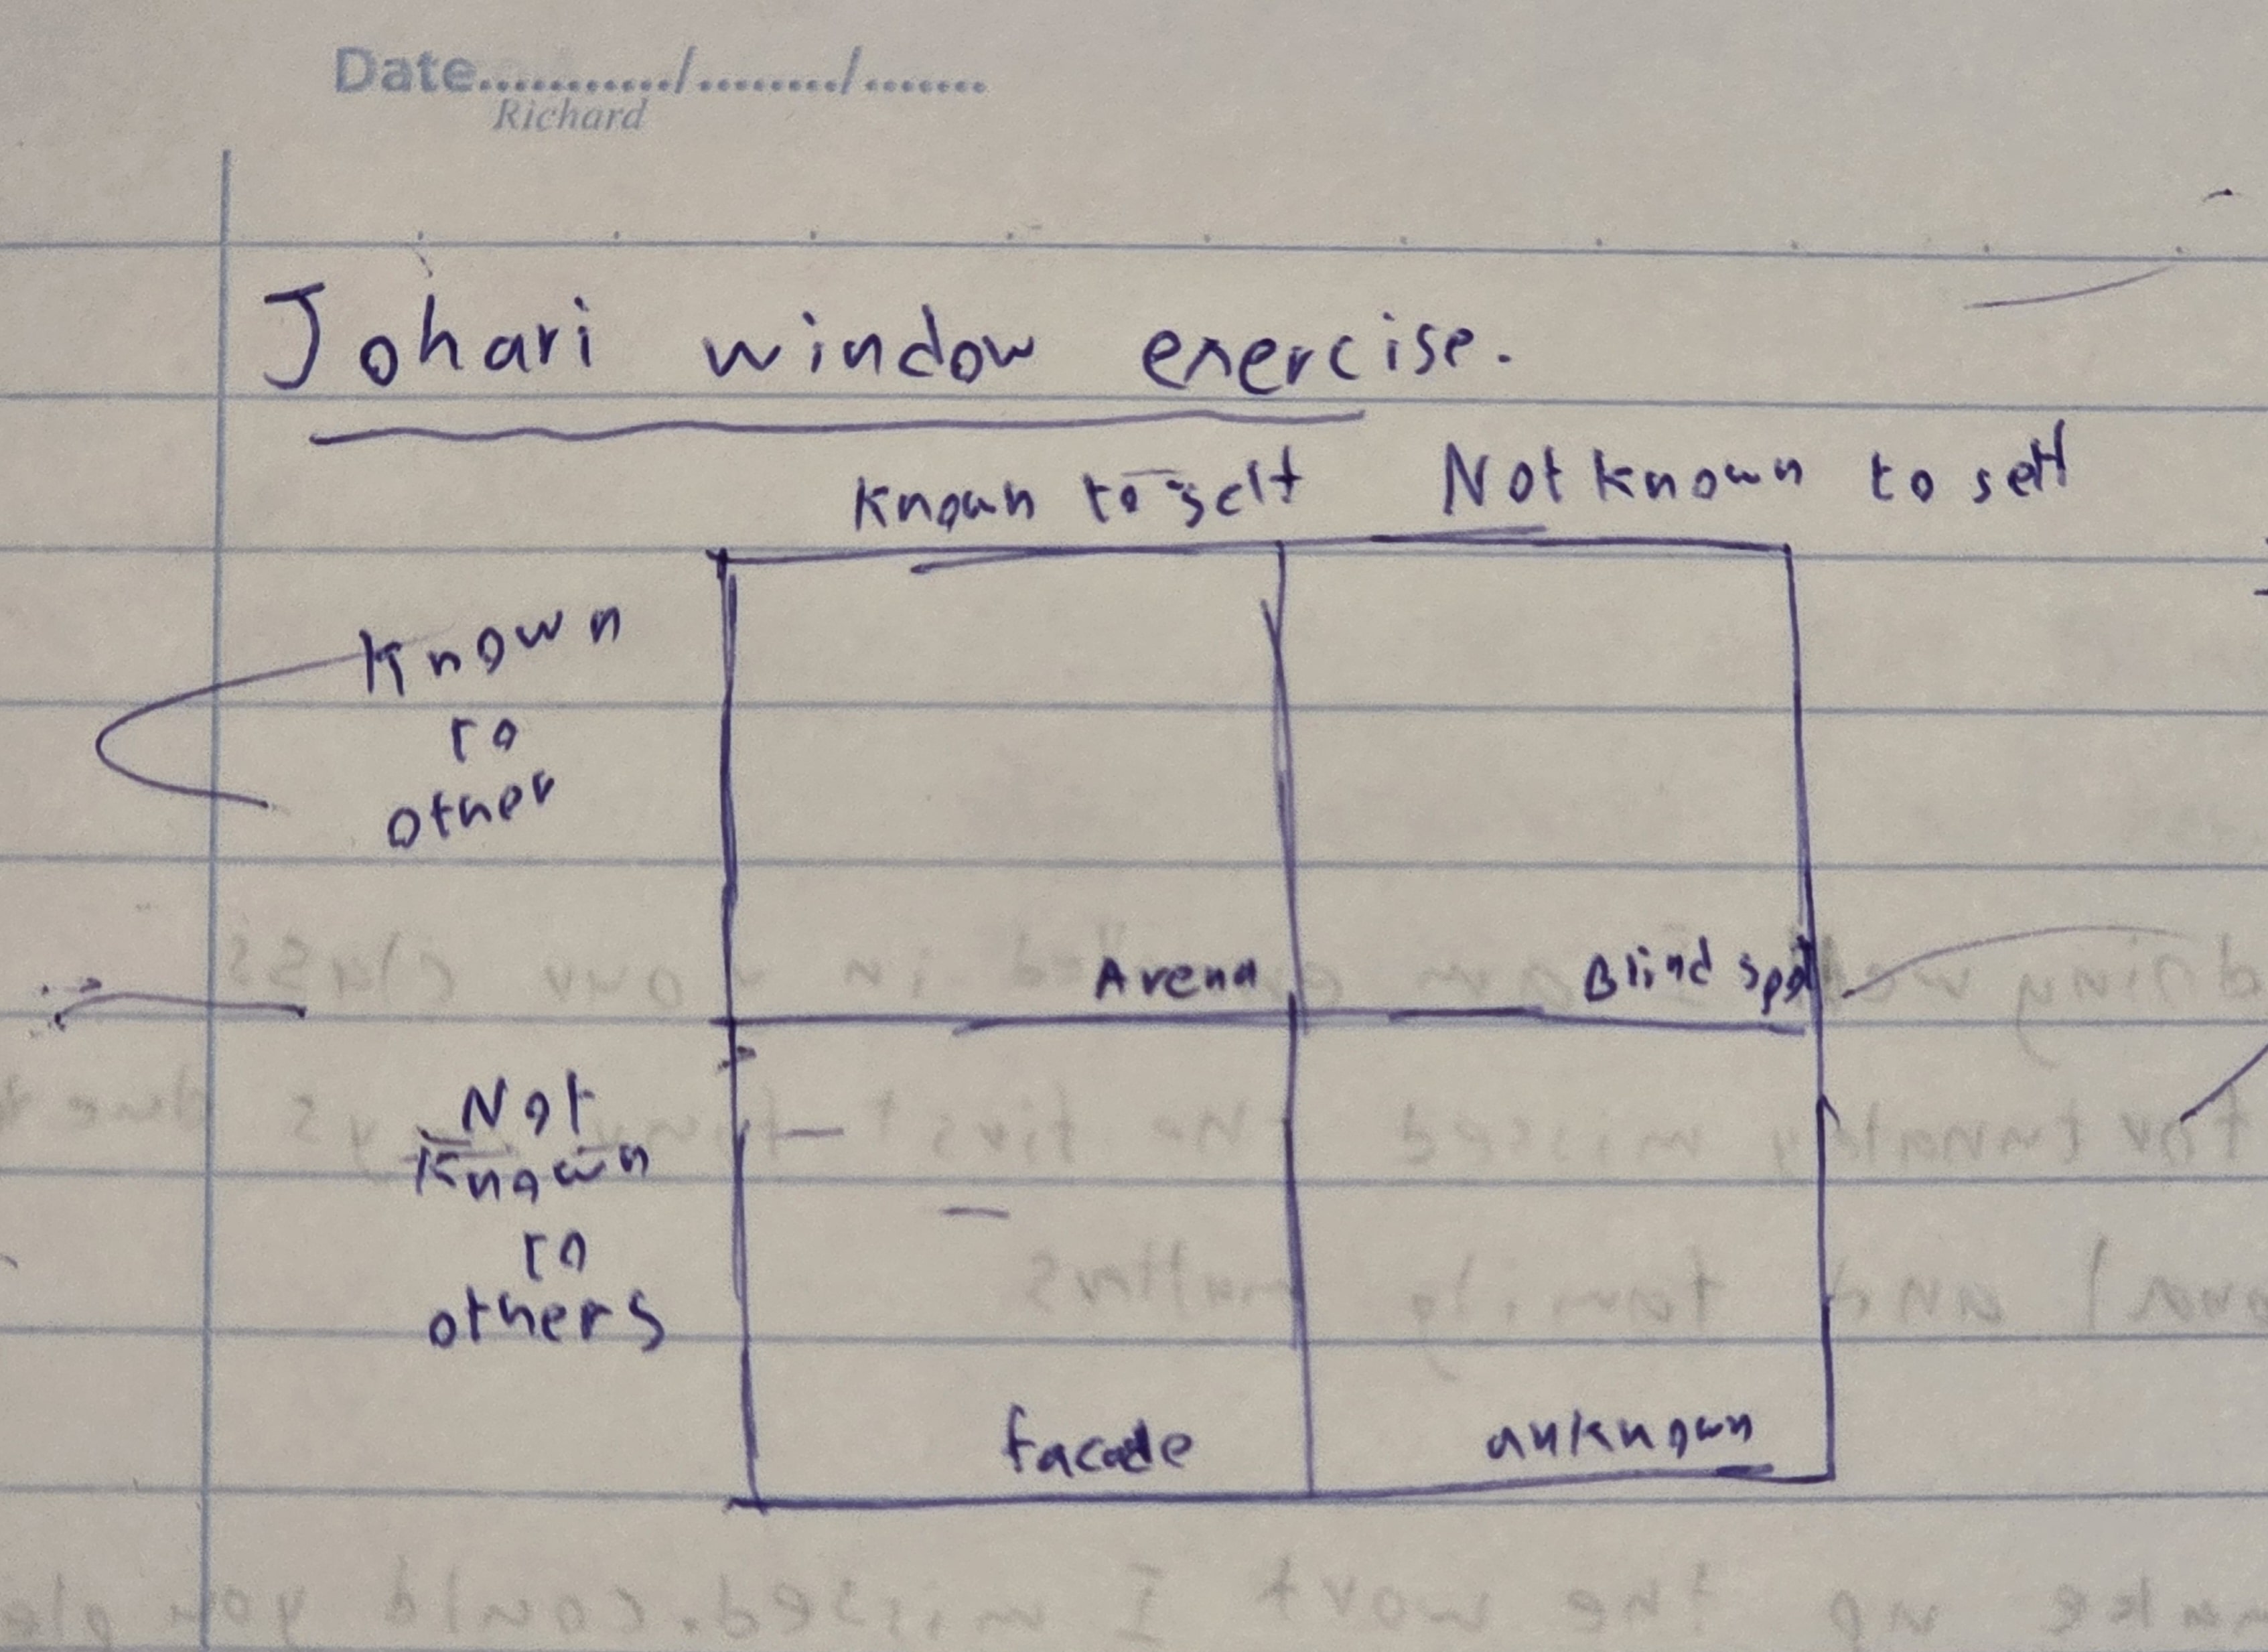 Date.........../......../.......
Richard
Johari window exercise.
Known to self Not known to self
Known
to
other
Arena Blind spot
Not
Known
to
others
facade unknown